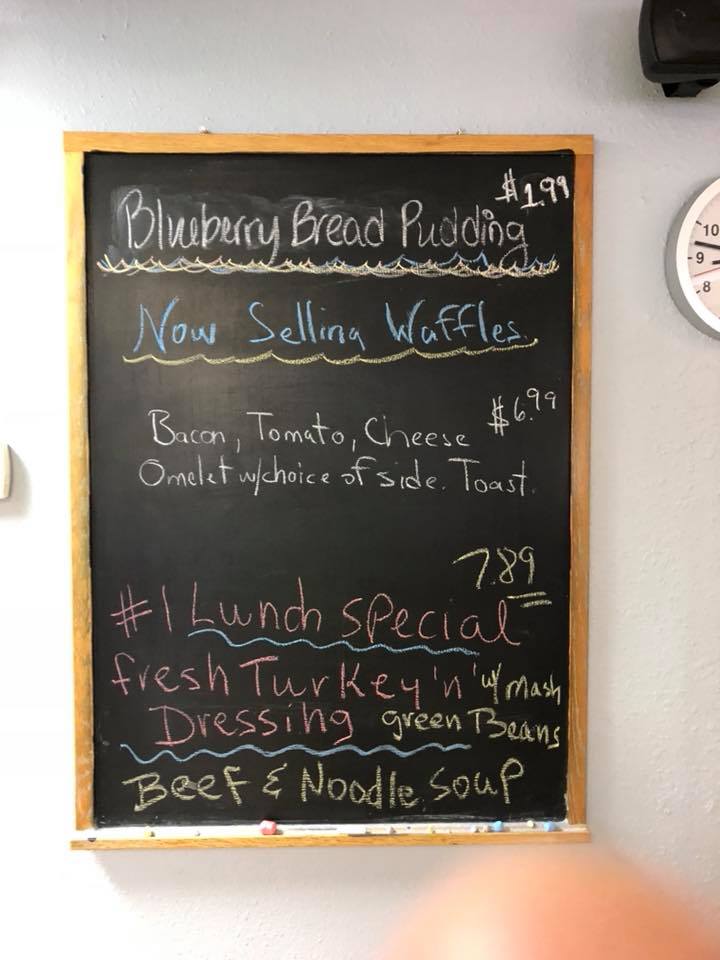 $1.99
Blueberry Bread Pudding
Now Selling Waffles.
$6.99
Bacon, Tomato, Cheese
Omelet w/choice of side. Toast.
7.89
#1 Lunch special
fresh Turkey 'n' w/ mash
Dressing green Beans
Beef & Noodle Soup
10
9
8